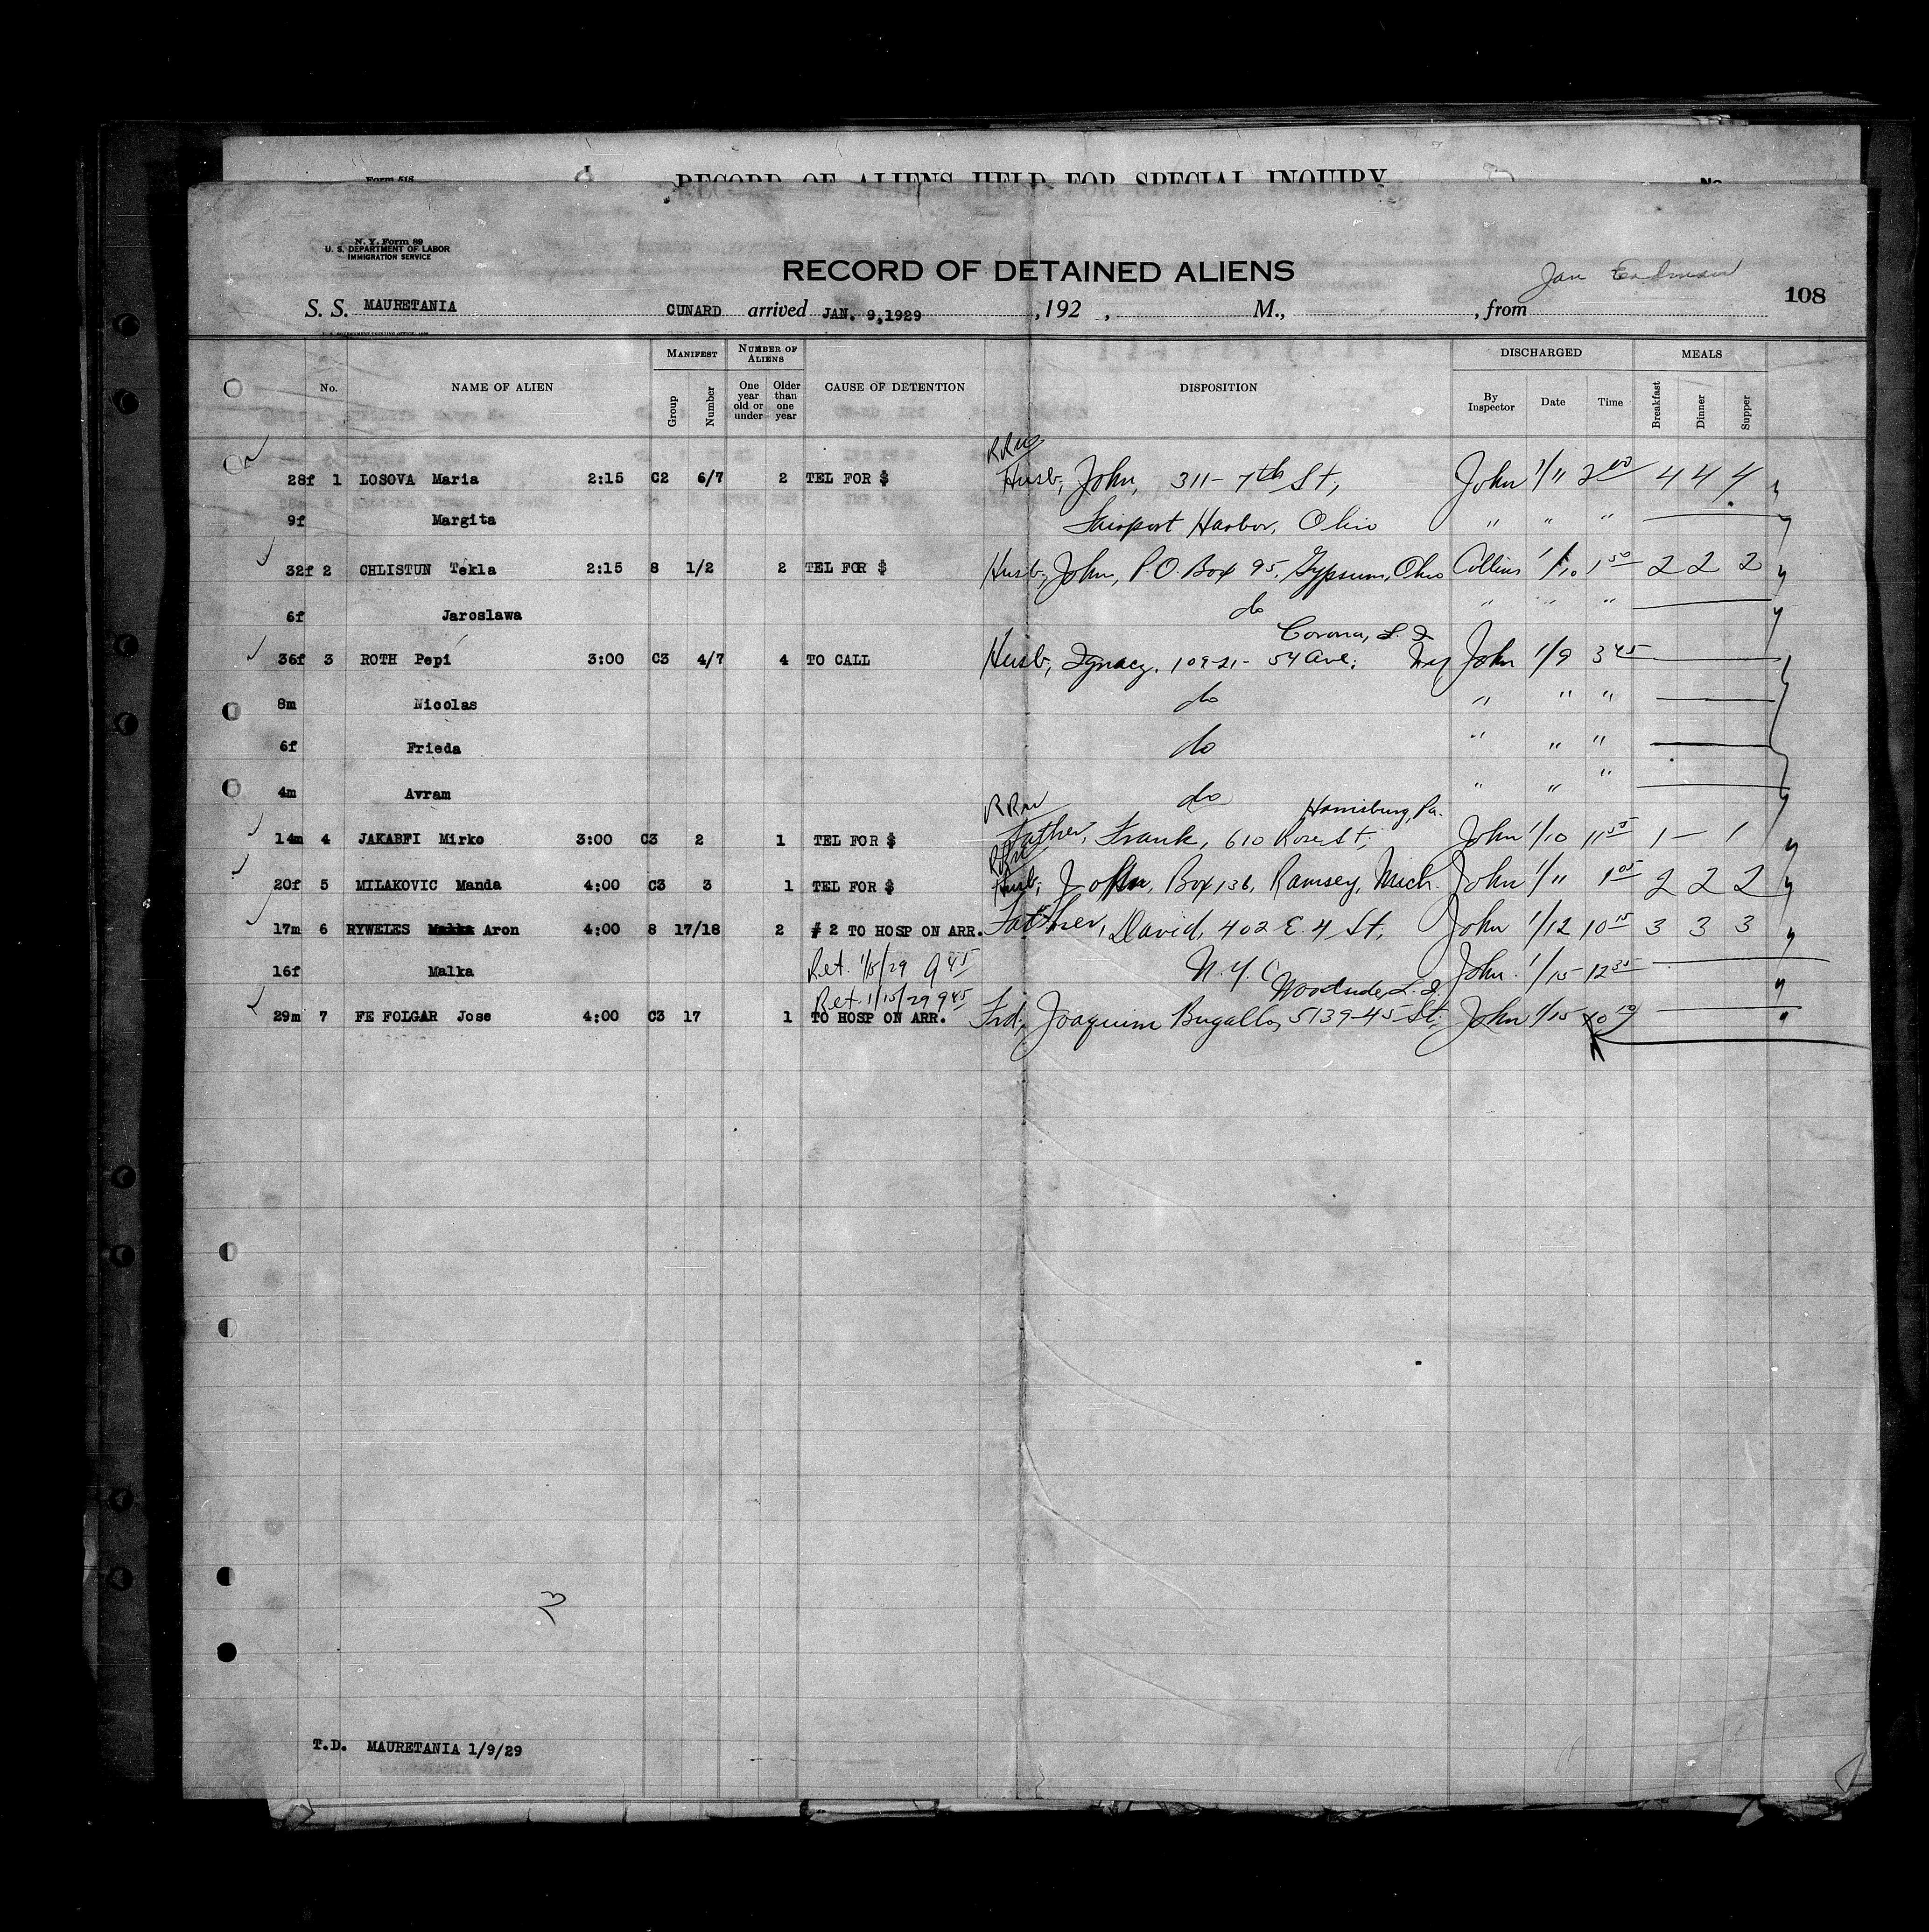 Form 518
RECORD OF ALIENS HELD FOR SPECIAL INQUIRY
No.
N. Y. Form 89
U. S. DEPARTMENT OF LABOR
IMMIGRATION SERVICE
RECORD OF DETAINED ALIENS
108
S. S. MAURETANIA CUNARD arrived JAN. 9, 1929, 192 , M., , from
MANIFEST NUMBER OF ALIENS DISCHARGED MEALS
No. NAME OF ALIEN Group Number One year old or under Older than one year CAUSE OF DETENTION DISPOSITION By Inspector Date Time Breakfast Dinner Supper
28f 1 LOSOVA Maria 2:15 C2 6/7 2 TEL FOR $ Husb, John, 311- 7th St, John 1/11 2 00 4 4 4
9f Margita Fairport Harbor, Ohio " " "
32f 2 CHLISTUN Tekla 2:15 8 1/2 2 TEL FOR $ Husb, John, P.O. Box 95, Gypsum, Ohio Collins 1/10 1 50 2 2 2
6f Jaroslawa do " " "
Corona, L. I.
36f 3 ROTH Pepi 3:00 C3 4/7 4 TO CALL Husb, Ignacz, 109-21- 54 Ave. NY John 1/9 3 45
8m Nicolas do " " "
6f Frieda do " " "
4m Avram do " " "
Harrisburg, Pa.
14m 4 JAKABFI Mirko 3:00 C3 2 1 TEL FOR $ Father, Frank, 610 Rose St, John 1/10 11 55 1 — 1
20f 5 MILAKOVIC Manda 4:00 C3 3 1 TEL FOR $ Husb, John, Box 136, Ramsey, Mich. John 1/11 1 05 2 2 2
17m 6 RYWELES Malka Aron 4:00 8 17/18 2 # 2 TO HOSP ON ARR. Father, David, 402 E. 4 St, John 1/12 10 15 3 3 3
16f Malka Ret. 1/15/29 9 45 N.Y.C John. 1/15 12 35
Ret. 1/15/29 9 45 Woodside, L. I.
29m 7 FE FOLGAR Jose 4:00 C3 17 1 TO HOSP ON ARR. Frd, Joaquim Bugallo, 5139-45 St, John 1/15 10 10
T.D. MAURETANIA 1/9/29